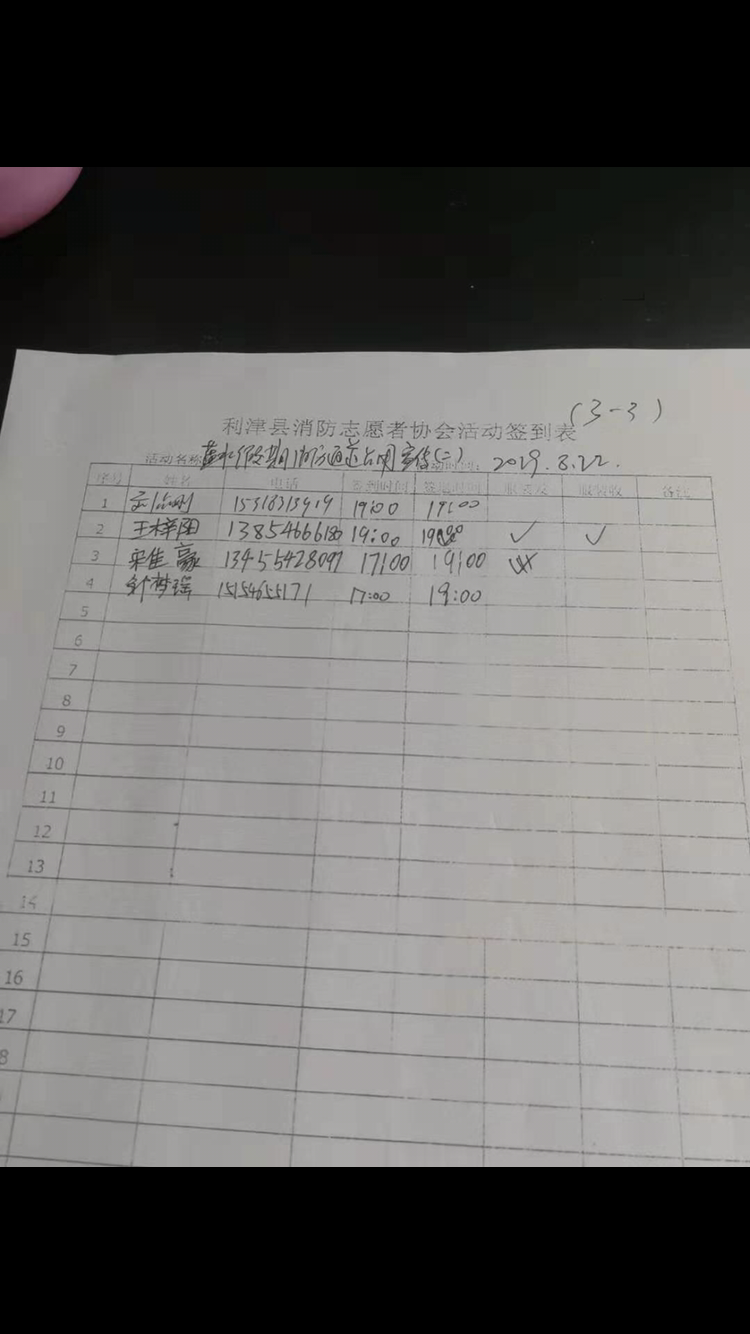 (3-3)
利津县消防志愿者协会活动签到表
活动名称: 假期消防通道占用宣传(二) 活动时间: 2019.8.22.
序号 姓名 电话 签到时间 签退时间 服装发 服装收 备注
1 15316313919 19:00 19:00
2 王梓阳 13854666180 19:00 ✓ ✓
3 宋佳赢 13455428097 17:00 19:00
4 梦瑶 15154655171 17:00 19:00
5
6
7
8
9
10
11
12
13
14
15
16
17
8